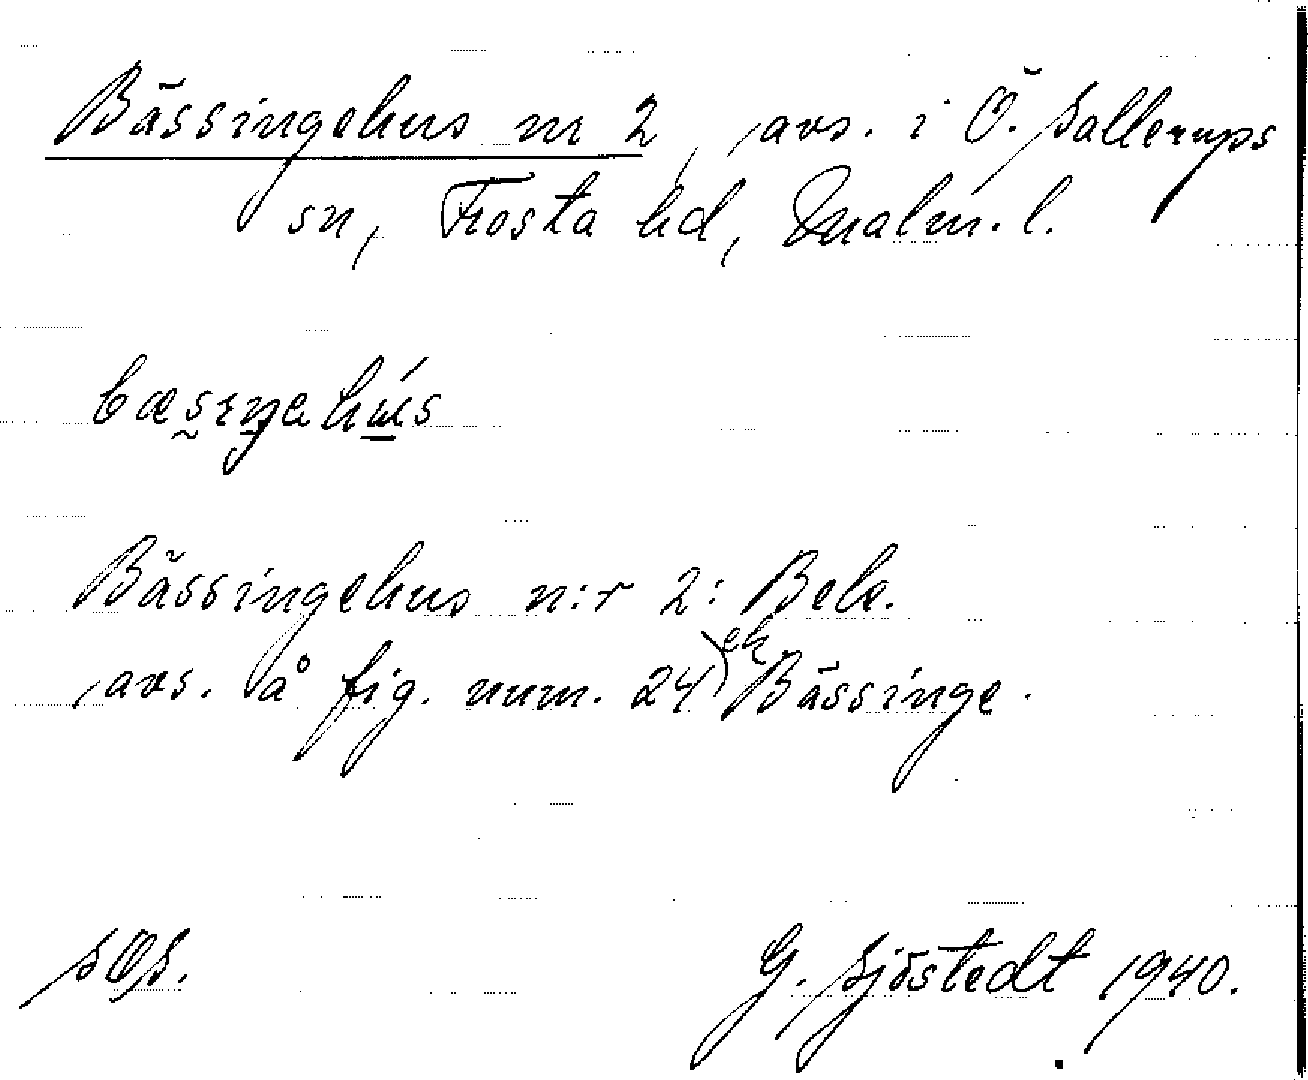 Bässingehus nr 2, avs. i Ö. Sallerups
sn, Frosta hd, Malm. l.
bæsɪŋahús
Bässingehus n:r 2: Bele.
avs. å fig. num. 24) eh. Bässinge.
SOS.
G. Sjöstedt 1940.